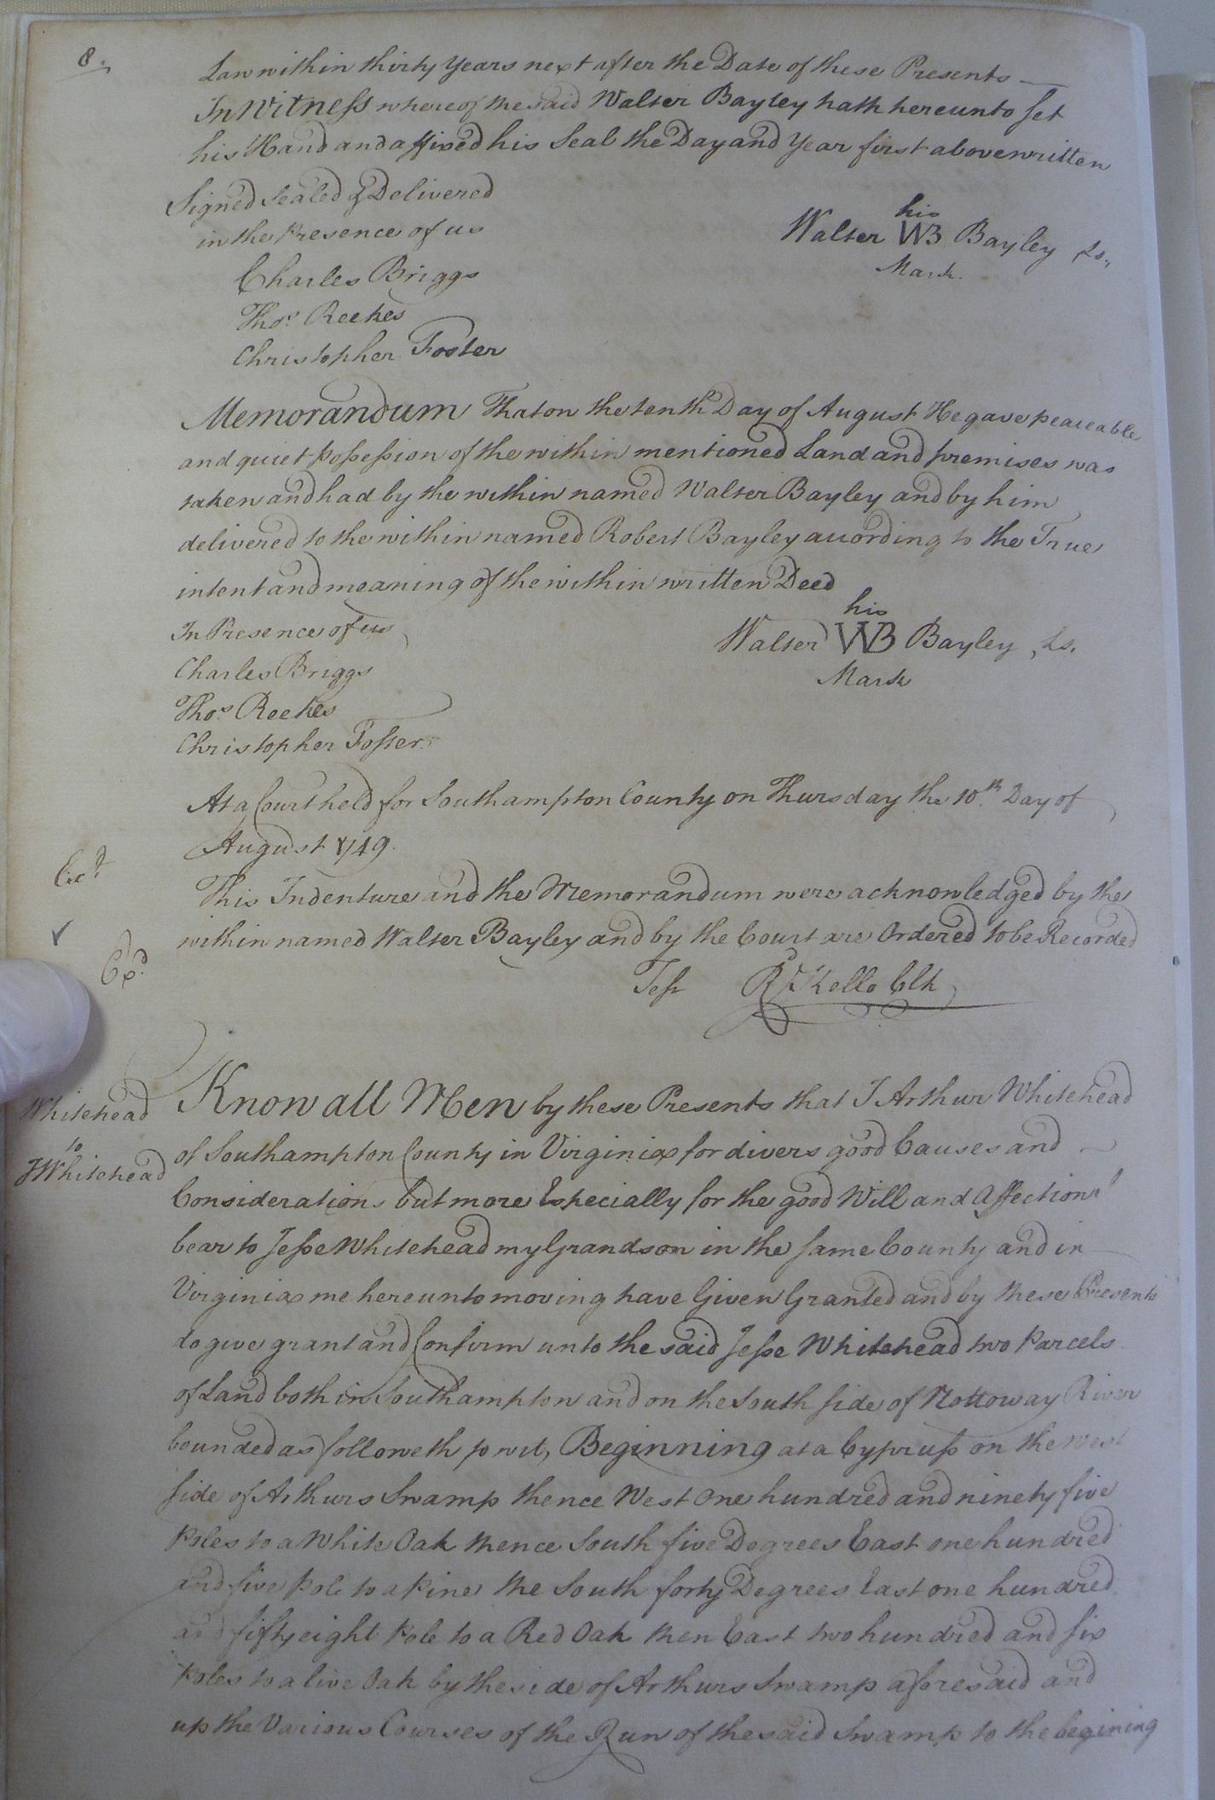 8.
Law within thirty Years next after the Date of these Presents
In Witness whereof the said Walter Bayley hath hereunto set
his Hand and affixed his Seal the Day and Year first above written
Signed Sealed & Delivered
in the Presence of us
his
Walter WB Bayley Ls.
Mark
Charles Briggs
Thos. Reekes
Christopher Foster
Memorandum That on the tenth Day of August peaceable
and quiet Possession of the within mentioned Land and premises was
taken and had by the within named Walter Bayley and by him
delivered to the within named Robert Bayley according to the True
intent and meaning of the within written Deed
In Presence of us
his
Walter WB Bayley Ls.
Mark
Charles Briggs
Thos. Reekes
Christopher Foster
At a Court held for Southampton County on Thursday the 10th. Day of
August 1749.
This Indenture and the Memorandum were acknowledged by the
within named Walter Bayley and by the Court are Ordered to be Recorded
Exd.
Test Rd. Kello Clk
Whitehead
to
JWhitehead
Know all Men by these Presents that I Arthur Whitehead
of Southampton County in Virginia for divers good Causes and
Considerations but more Especially for the good Will and Affection I
bear to Jesse Whitehead my Grandson in the same County and in
Virginia me hereunto moving have Given Granted and by these Presents
do give grant and Confirm unto the said Jesse Whitehead two Parcels
of Land both in Southampton and on the South side of Nottoway River
bounded as followeth to wit, Beginning at a Cypruss on the West
side of Arthurs Swamp thence West One hundred and ninety five
Poles to a White Oak thence South five Degrees East one hundred
and five Pole to a Pine the South forty Degrees East one hundred
and fifty eight Pole to a Red Oak then East two hundred and six
Poles to a live Oak by the side of Arthurs Swamp aforesaid and
up the Various Courses of the Run of the said Swamp to the begining